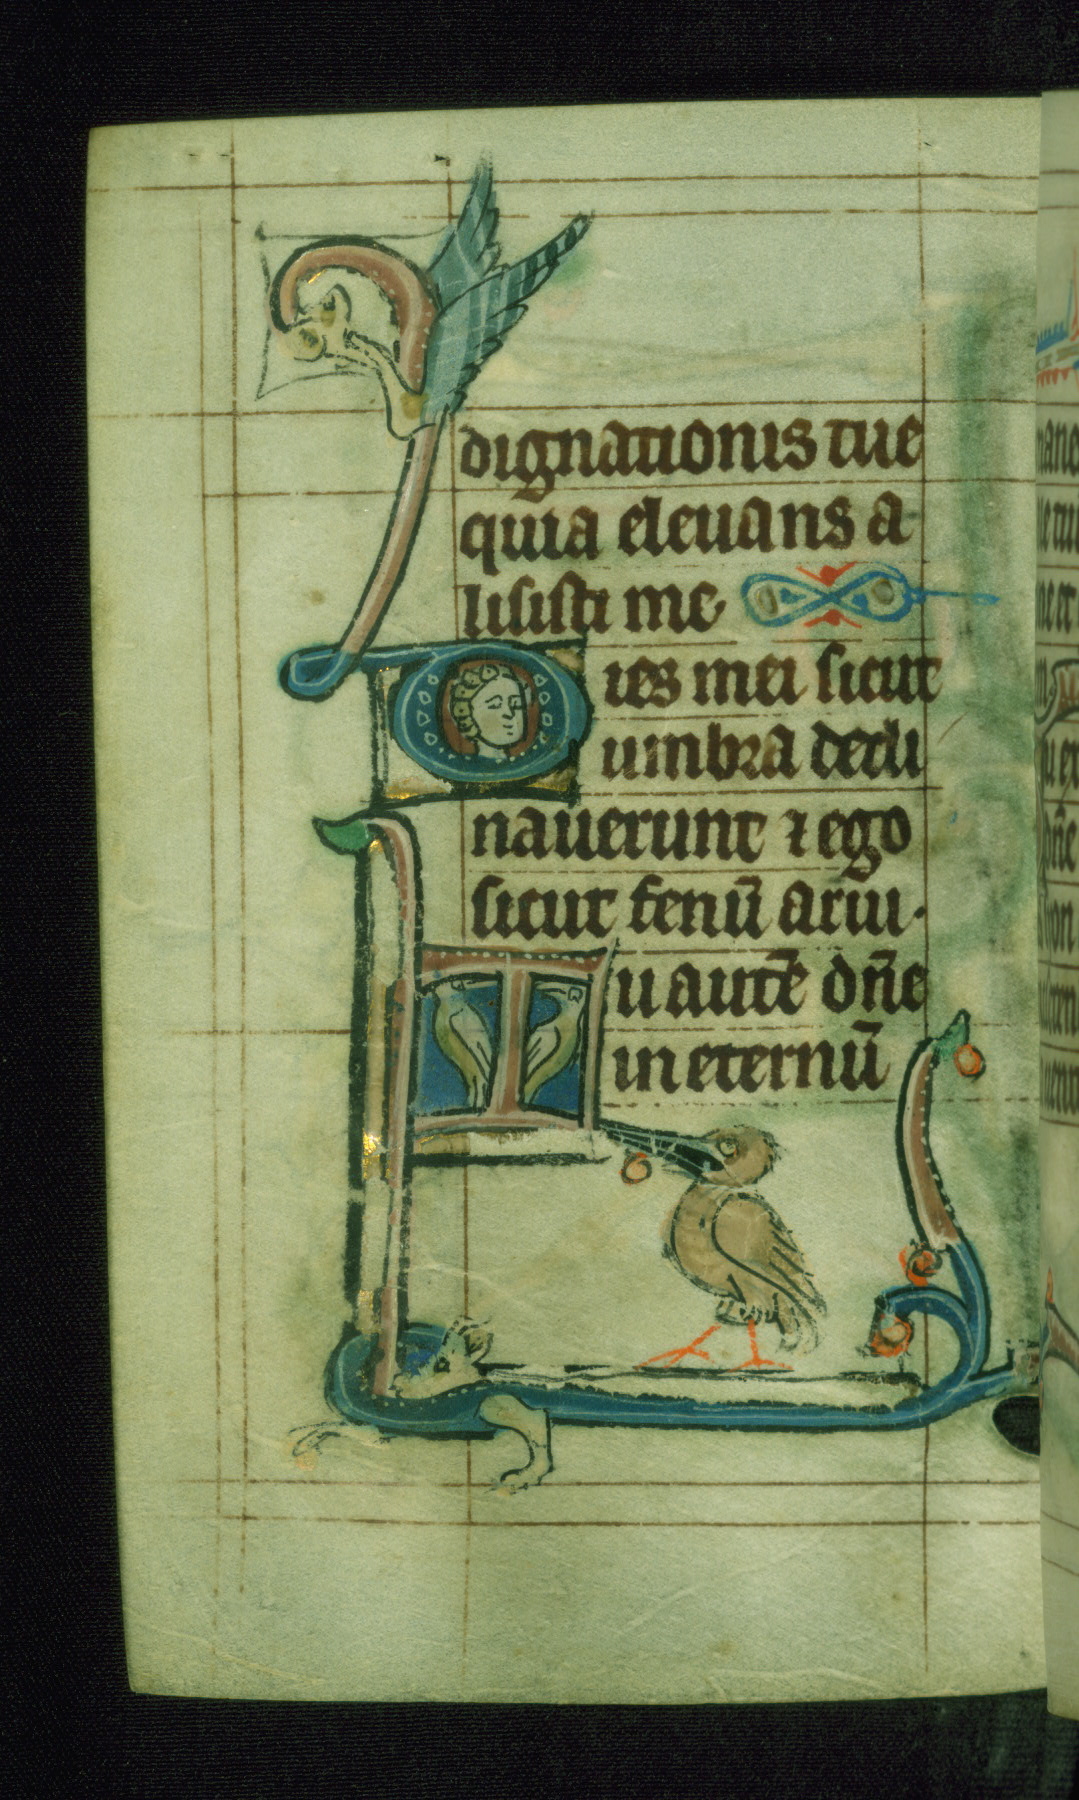 dignationis tue
quia eleuans a
lisisti me
Dies mei sicut
umbra decli
nauerunt ⁊ ego
sicut fenū arui·
Tu autē dn̄e
in eternū